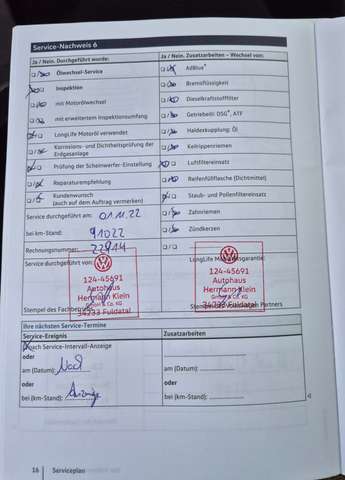 Service-Nachweis 6
Ja / Nein. Durchgeführt wurde:
Ölwechsel-Service
Inspektion
mit Motorölwechsel
mit erweitertem Inspektionsumfang
LongLife Motoröl verwendet
Korrosions- und Dichtheitsprüfung der
Erdgasanlage
Prüfung der Scheinwerfer-Einstellung
Reparaturempfehlung
Kundenwunsch
(auch auf dem Auftrag vermerken)
Service durchgeführt am: 01.11.22
bei km-Stand: 91022
Rechnungsnummer: 22914
Service durchgeführt von:
124-45691
Autohaus
Hermann Klein
GmbH & Co. KG
34233 Fuldatal
Stempel des
Ja / Nein. Zusatzarbeiten – Wechsel von:
AdBlue®
Bremsflüssigkeit
Dieselkraftstofffilter
Getriebeöl: DSG®, ATF
Haldexkupplung: Öl
Keilrippenriemen
Luftfiltereinsatz
Reifenfüllflasche (Dichtmittel)
Staub- und Pollenfiltereinsatz
Zahnriemen
Zündkerzen
LongLife
124-45691
Autohaus
Hermann Klein
GmbH & Co. KG
34233 Fuldatal
Partners
Ihre nächsten Service-Termine
Service-Ereignis
Zusatzarbeiten
nach Service-Intervall-Anzeige
oder
am (Datum): Nach
oder
bei (km-Stand): Anzeige
oder
am (Datum):
oder
bei (km-Stand):
16 Serviceplan